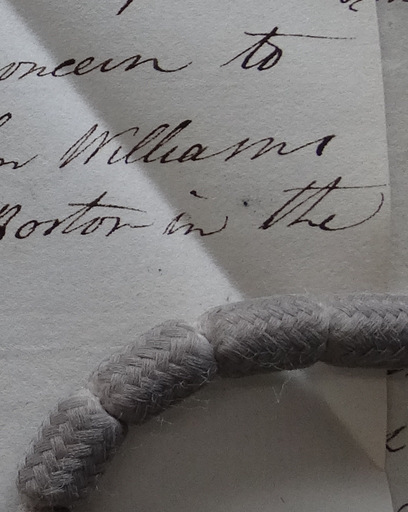 concern to
Williams
Boston in the